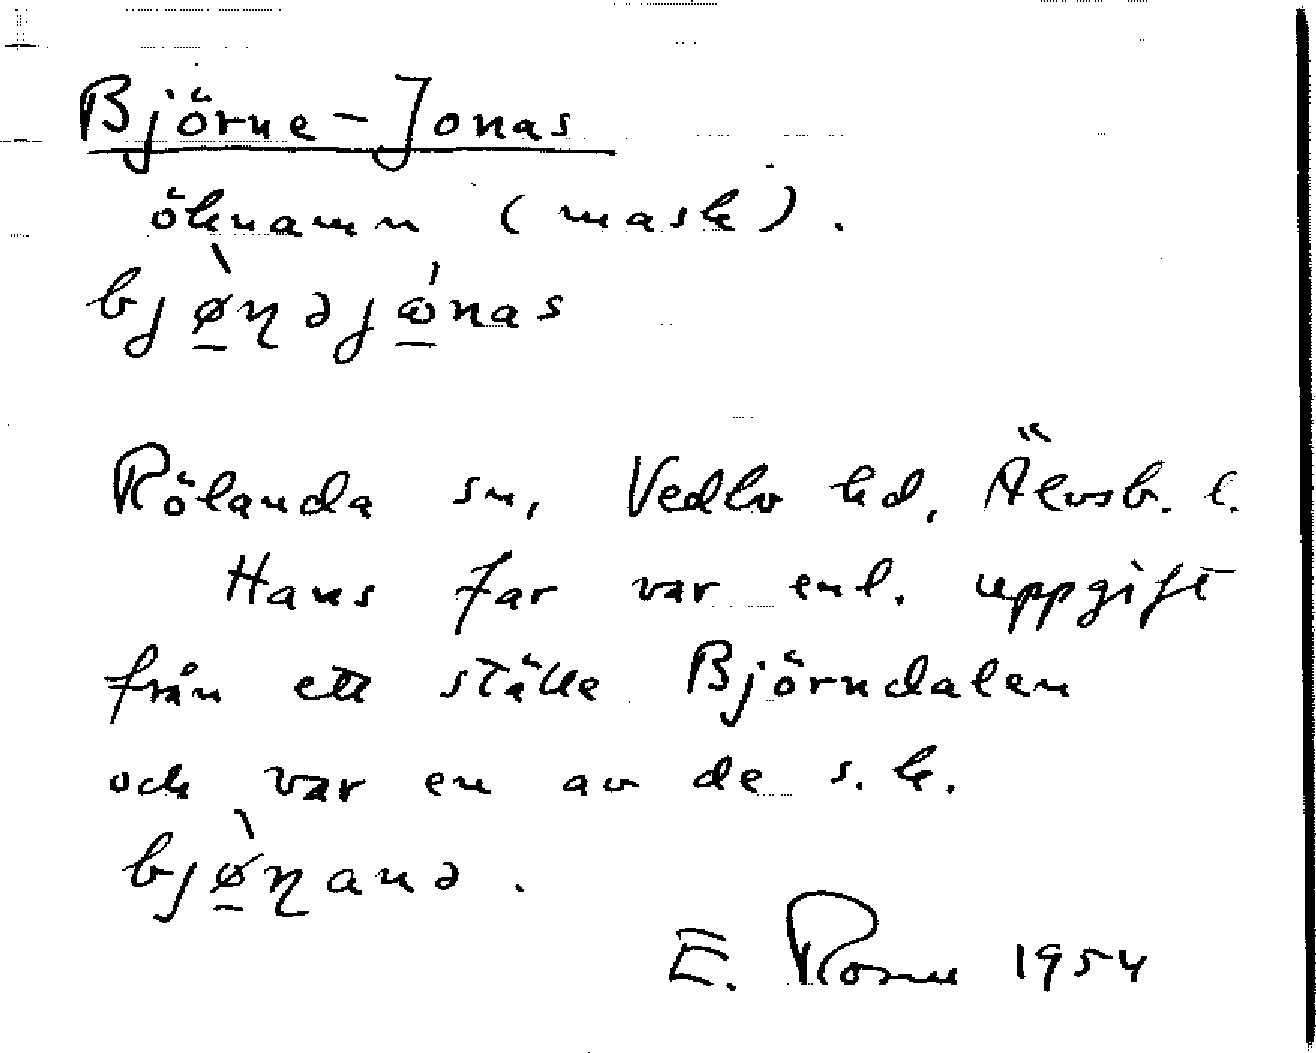 Björne-Jonas
öknamn (mask).
bjø̱̀ɳəjώ̱nas
Rölanda sn, Vedbo hd, Älvsb. l.
Hans far var enl. uppgift
från ett ställe Björndalen
och var en av de s. k.
bjø̱̀ɳanə.
E. 1954